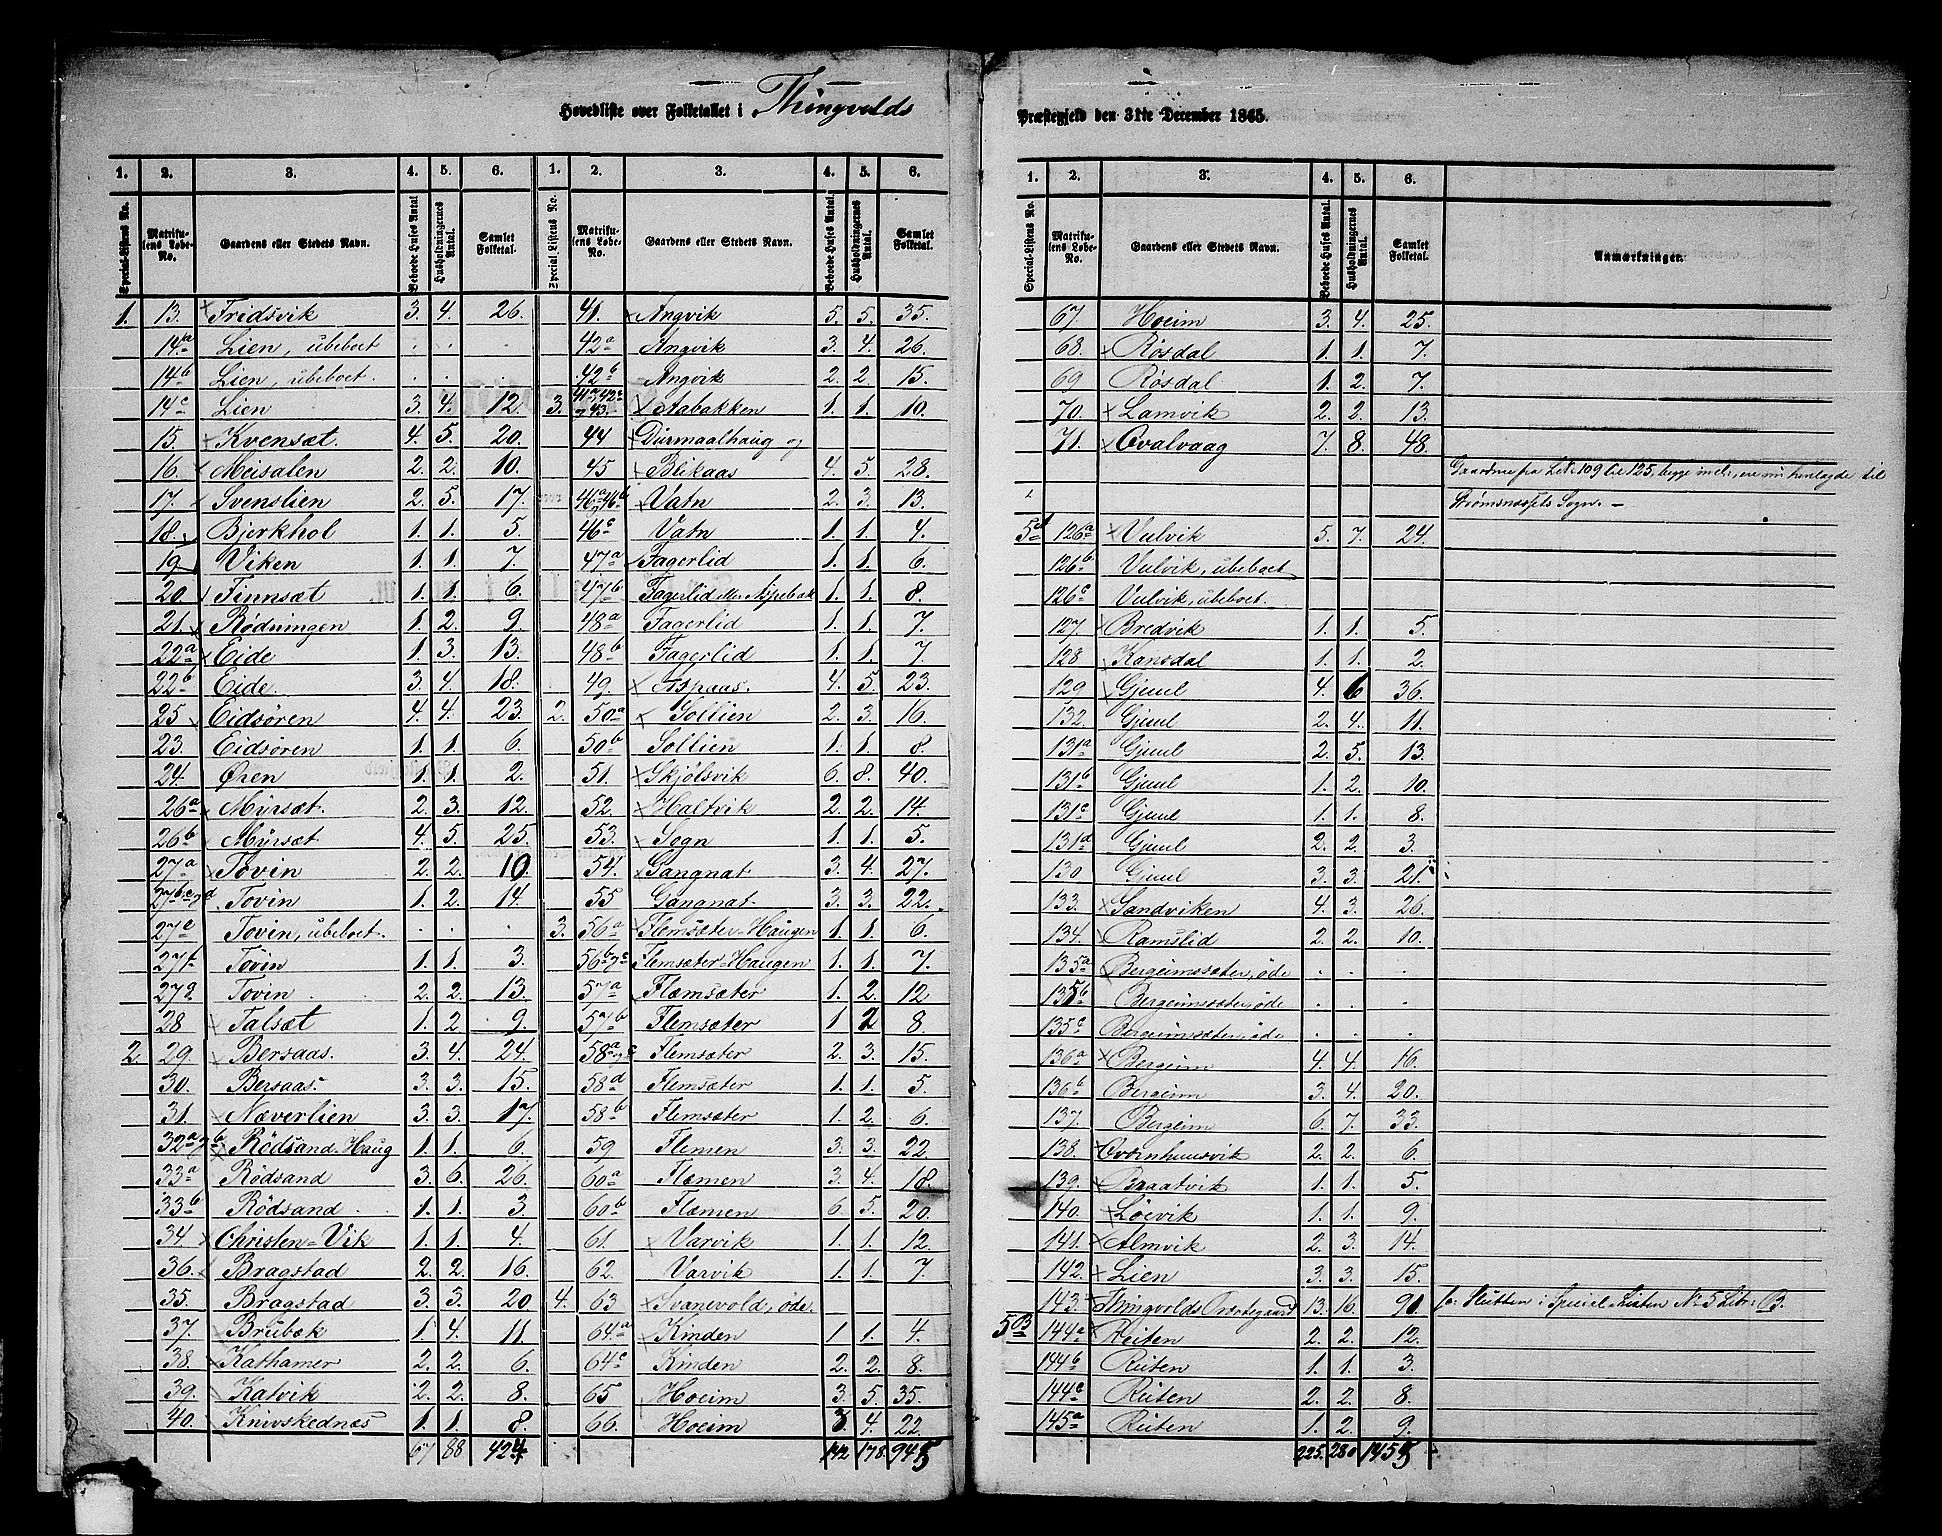 Hovedliste over Folketallet i Thingvolds Præstegjeld den 31te December 1865.
1. 2. 3. 4. 5. 6. 1. 2. 3. 4. 5. 6.
Special-Listens No. Matrikulens Løbe-No. Gaardens eller Stedets Navn. Beboede Huses Antal Husholdningernes Antal. Samlet Folketal. Special Listens No. Matrikulens Løbe-No. Gaardens eller Stedets Navn. Beboede Huses Antal. Husholdningernes Antal. Samlet Folketal.
1. 13. Fridsvik 3. 4. 26.
14a Lien, ubeboet . . .
14b Lien, ubeboet . . .
14c Lien 3. 4. 12.
15. Kvensæt. 4. 5. 20.
16. Meisalen 2. 2. 10.
17. Svenslien 2. 5. 17.
18. Bjerkhol 1. 1. 5.
19 Viken 1. 1. 7.
20. Finnsæt 1. 1. 6.
21. Rødningen 1. 2. 9.
22a Eide 1. 3. 13.
22b Eide. 3. 4. 18.
25 Eidsøren 4. 4. 23.
23. Eidsøren 1. 1. 6.
24. Øren 1. 1. 2.
26a Myrsæt 2. 3. 12.
26b Myrsæt 4. 5. 25.
27a Tovin 2. 2. 10.
27b c & d Tovin 1. 2. 14.
27e Tovin, ubeboet . . .
27f Tovin 1. 1. 3.
27g Tovin 2. 2. 13.
28 Talsæt 1. 2 9.
2. 29. Bersaas. 3. 4. 24.
30. Bersaas. 3. 3. 15.
31. Næverlien 3. 3. 17.
32a & b Rødsand-Haug 1. 1. 6.
33a Rødsand 3. 6. 26.
33b Rødsand. 1. 1. 3.
34. Christen-Vik 1. 1. 4.
36. Bragstad 2. 2. 16.
35. Bragstad 3. 3. 20
37. Brubæk 1. 4. 11.
38. Kathamer 2. 2. 6.
39. Katvik 2. 2. 8.
40. Knivskednæs 1. 1. 8.
67 88 424
41. Angvik 5. 5. 35.
42a Angvik 3. 4. 26.
42b Angvik 2. 2. 15.
3. 41a, 42c & 43. Aabakken 1. 1. 10.
44 Durmaalhaug og
45 Blikaas 4. 5. 28.
46a & 46b Vatn 2. 3. 13.
46c Vatn 1. 1. 4.
47a Fagerlid 1. 1. 6.
47b Fagerlid eller Aspebak 1. 1. 8.
48a Fagerlid 1. 1. 7.
48b Fagerlid 1. 1. 7
49. Aspaas. 4. 5. 23.
2. 50a Sollien 2. 3. 16.
50b Sollien 1. 1. 8.
51. Skjølsvik 6. 8. 40.
52. Haltvik 2. 2. 14.
53. Sogn 1. 1. 5.
54. Gangnat 3. 4. 27.
55 Gangnat. 3. 3. 22.
3. 56a Flemsæter-Haugen 1. 1. 6.
56b & c Flemsæter-Haugen 1. 1. 7.
57a Flæmsæter 1. 2. 12
57b Flemsæter 1. 2 8.
58a & c Flemsæter 2. 3. 15.
58d Flemsæter 1. 1. 5.
58b Flemsæter 1. 2. 6.
59 Flemen 3. 3. 22.
60a Flæmen 3. 4. 18.
60b Flæmen 6. 5. 20.
61. Varvik 1. 1. 12.
62. Varvik 1. 1. 7.
4. 63 Svanevold, øde.
64a Kinden 1 1. 4.
64c Kinden 2. 2. 8.
65 Hoeim 3. 5. 35.
66. Hoeim 3. 4. 22.
142 178 945
1. 2. 3. 4. 5. 6.
Special-Listens No. Matrikulens Løbe-No. Gaardens eller Stedets Navn. Beboede Huses Antal. Husholdningernes Antal. Samlet Folketal. Anmærkninger.
67 Hoeim 3. 4. 25.
68. Røsdal 1. 1. 7.
69 Røsdal 1. 2. 7.
70. Lamvik 2. 2. 13.
71. Qvalvaag 7. 8. 48.
Gaardene fra Litr. 109 til 125, begge incl., ere nu henlagde til
Strømsnæssets Sogn. —
5A 126a Vulvik 5. 7. 24.
126b Vulvik, ubeboet
126c Vulvik, ubeboet.
127. Bredvik 1. 1. 5.
128. Kansdal 1. 1. 2.
129 Gjuul 4. 6 36.
132. Gjuul 2. 4. 11.
131a Gjuul 2. 5. 13.
131b Gjuul 1. 2. 10.
131c Gjuul 1. 1. 8.
131d Gjuul 2. 2. 3.
130 Gjuul 3. 3. 21.
133. Sandviken 4. 3. 26.
134. Ramslid 2. 2. 10.
135a Bergeimsæter, øde . . .
135b Bergeimsæter, øde . . .
135c Bergeimsæter, øde . . .
136a Bergeim 4. 4. 16.
136b Bergeim 3. 4. 20.
137. Bergeim 6. 7. 33.
138. Qværnhuusvik 2. 2. 6.
139. Braatvik 1. 1. 5.
140. Løevik 1. 1. 9.
141. Almvik 2. 3. 14.
142. Lien 3. 3. 15.
143. Thingvolds Præstegaard 13. 16. 91. fr. Slutten i Special Listen No 5 Litr: B.
5B 144a Reiten 2. 2. 12.
144b Reiten 1. 1. 3.
144c Reiten 2. 2. 8.
145a Reiten 1. 2. 9.
225. 280 1455